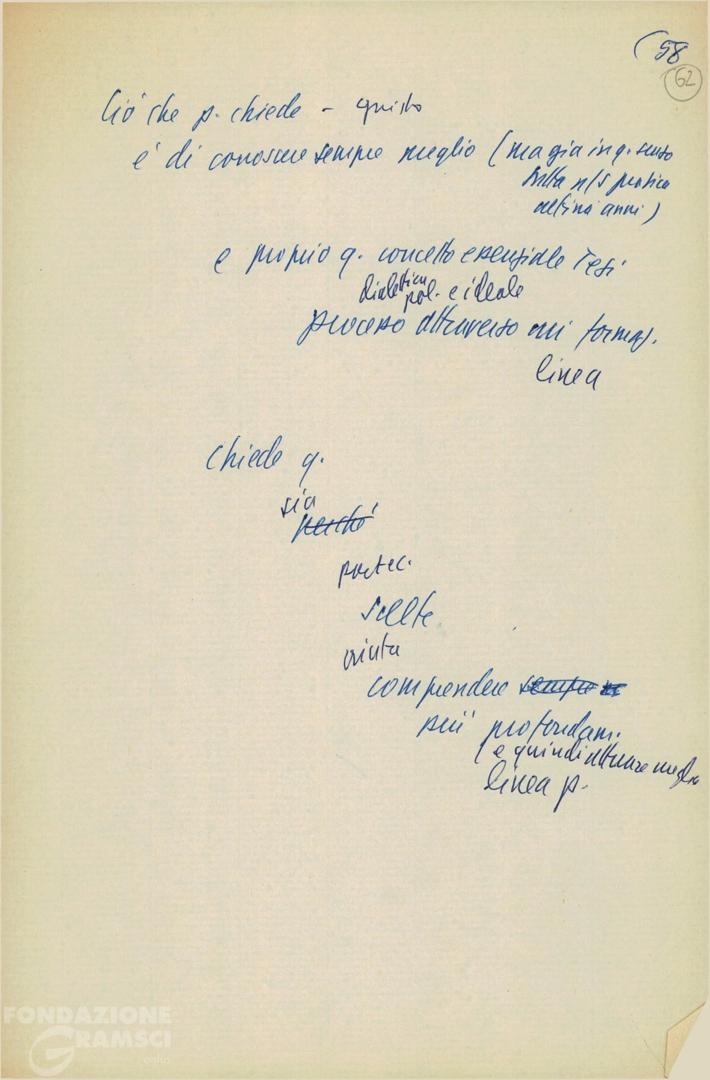 (58
62
Ciò che p. chiede - giusto
è di conoscere sempre meglio (ma già in q. senso
sulla n/s pratica
ultimi anni)
e proprio q. concetto essenziale Tesi
dialettica
pol. e ideale
processo attraverso cui formaz.
linea
Chiede q.
sia
perché
partec.
scelte
aiuta
comprendere sempre
più profondam.
(e quindi attuare meglio
linea p.
FONDAZIONE
GRAMSCI